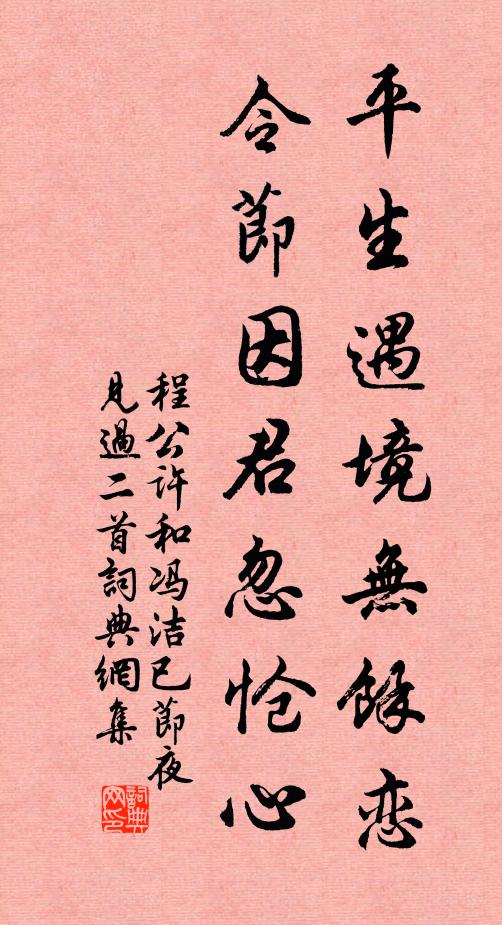 平生遇境無餘恋
令節因君忽怆心
程公许和冯洁已節夜
見過二首詞典網集
詞典网印